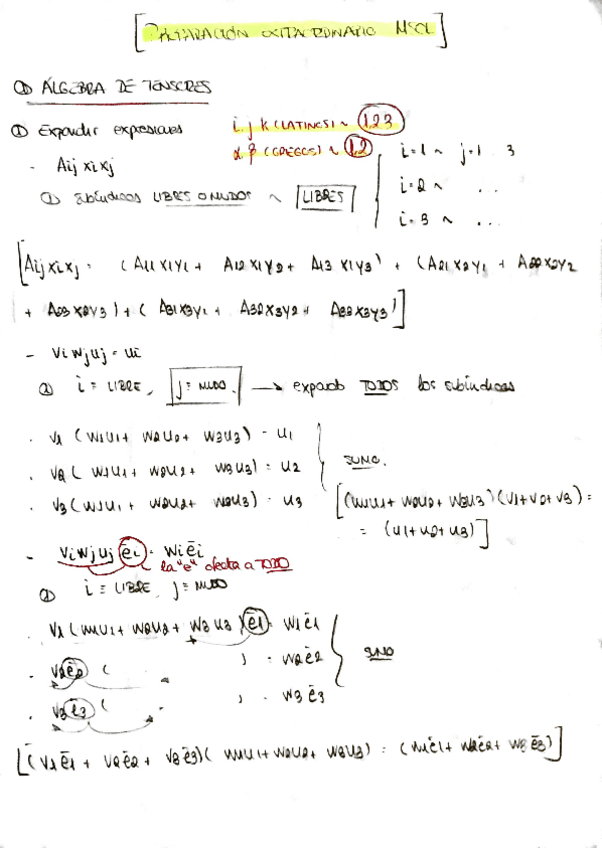 [PREPARACIÓN EXTRAORDINARIO MSCL]
① ÁLGEBRA DE TENSORES
① Expandir expresiones i, j, k (LATINOS) ~ 123
α, β (GRIEGOS) ~ 12
- Aij xi xj
① Subíndices LIBRES O MUDOS ~ LIBRES
i=1 ~ j=1 . 3
i=2 ~ . . .
i=3 ~ . . .
[Aij xi xj = (A11 x1y1 + A12 x1y2 + A13 x1y3) + (A21 x2y1 + A22 x2y2
+ A23 x2y3) + (A31 x3y1 + A32 x3y2 + A33 x3y3)]
- vi wj uj = ui
② i = LIBRE, j = MUDO. → expando TODOS los subíndices
· v1 (w1u1 + w2u2 + w3u3) = u1
· v2 (w1u1 + w2u2 + w3u3) = u2
· v3 (w1u1 + w2u2 + w3u3) = u3
SUMO.
[(w1u1 + w2u2 + w3u3)(v1+v2+v3) =
= (u1+u2+u3)]
- vi wj uj ēi = wi ēi
la "e" afecta a TODO
② i ≡ LIBRE, j ≡ MUDO
· v1 (w1u1 + w2u2 + w3u3) ē1 = w1ē1
· v2ē2 ( ) = w2ē2
· v3ē3 ( ) = w3ē3
SUMO
[(v1ē1 + v2ē2 + v3ē3)(w1u1 + w2u2 + w3u3) = (w1ē1 + w2ē2 + w3ē3)]